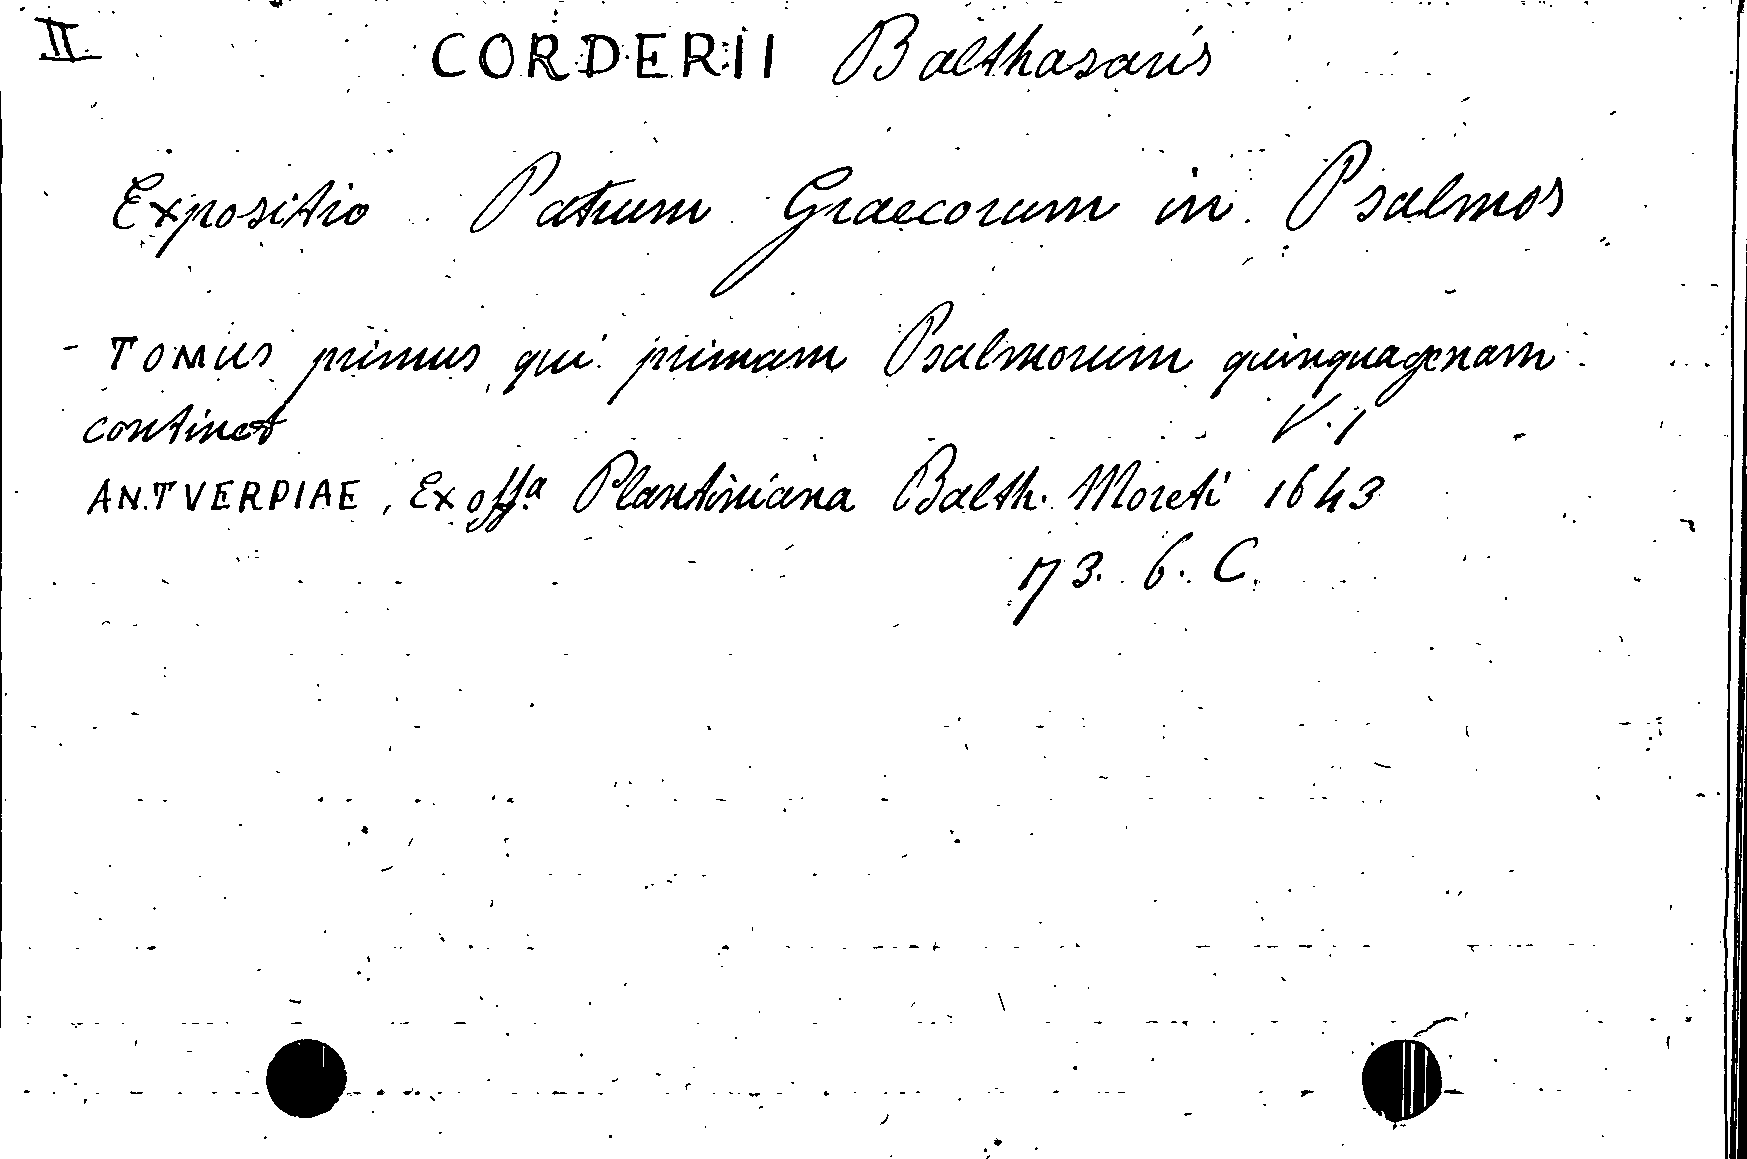 II
CORDERII Balthasaris
Expositio Patrum Graecorum in Psalmos
- TOMUS primus qui primam Psalmorum quinquagenam
continet
V. 1
ANTVERPIAE, Ex offª Plantiniana Balth. Moreti 1643
173. 6. C.